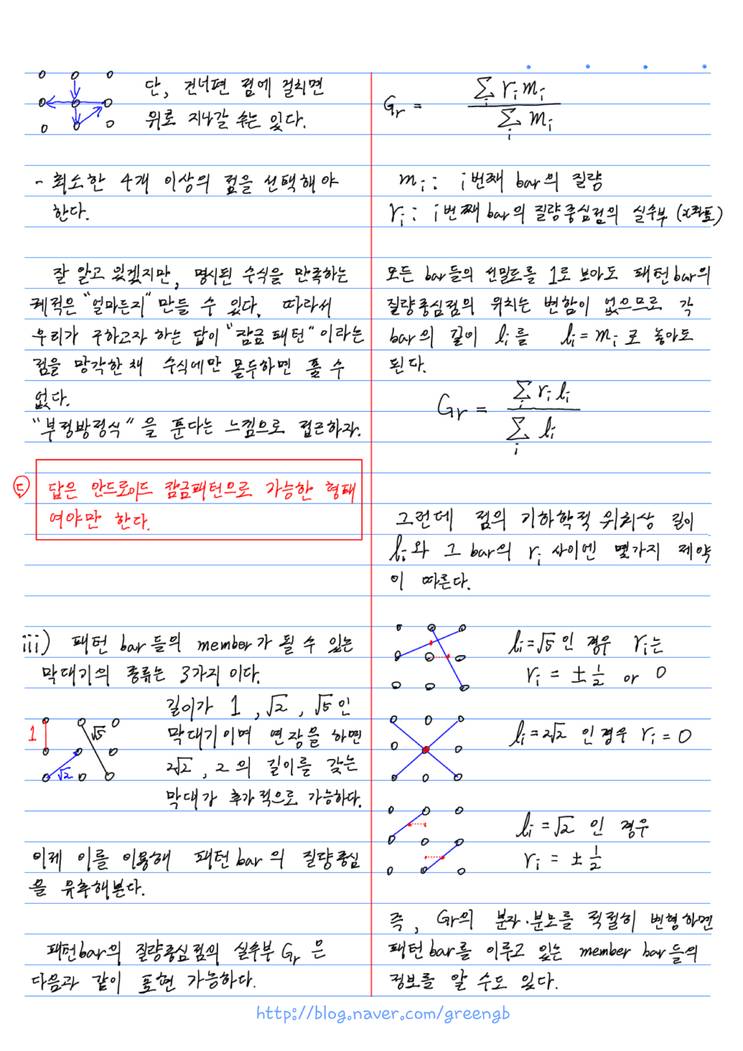 단, 건너편 점에 걸치면
위로 지나갈 수는 있다.
- 최소한 4개 이상의 점을 선택해야
한다.
잘 알고 있겠지만, 명시된 수식을 만족하는
궤적은 "얼마든지" 만들 수 있다. 따라서
우리가 구하고자 하는 답이 "잠금 패턴"이라는
점을 망각한 채 수식에만 몰두하면 풀 수
없다.
"부정방정식"을 푼다는 느낌으로 접근하자.
답은 안드로이드 잠금패턴으로 가능한 형태
여야만 한다.
iii) 패턴 bar 들의 member가 될 수 있는
막대기의 종류는 3가지이다.
길이가 1, √2, √5 인
막대기이며 연장을 하면
2√2, 2의 길이를 갖는
막대가 추가적으로 가능하다.
1
√2
√5
이제 이를 이용해 패턴 bar의 질량중심
을 유추해본다.
패턴bar의 질량중심점의 실수부 Gr 은
다음과 같이 표현 가능하다.
Gr = Σi ri mi / Σi mi
mi : i번째 bar의 질량
ri : i번째 bar의 질량중심점의 실수부 (x좌표)
모든 bar들의 선밀도를 1로 보아도 패턴 bar의
질량중심점의 위치는 변함이 없으므로 각
bar의 길이 li를 li = mi 로 놓아도
된다.
Gr = Σi ri li / Σi li
그런데 점의 기하학적 위치상 길이
li와 그 bar의 ri 사이엔 몇가지 제약
이 따른다.
li = √5 인 경우 ri는
ri = ± 1/2 or 0
li = 2√2 인 경우 ri = 0
li = √2 인 경우
ri = ± 1/2
즉, Gr의 분자·분모를 적절히 변형하면
패턴 bar를 이루고 있는 member bar들의
정보를 알 수도 있다.
http://blog.naver.com/greengb